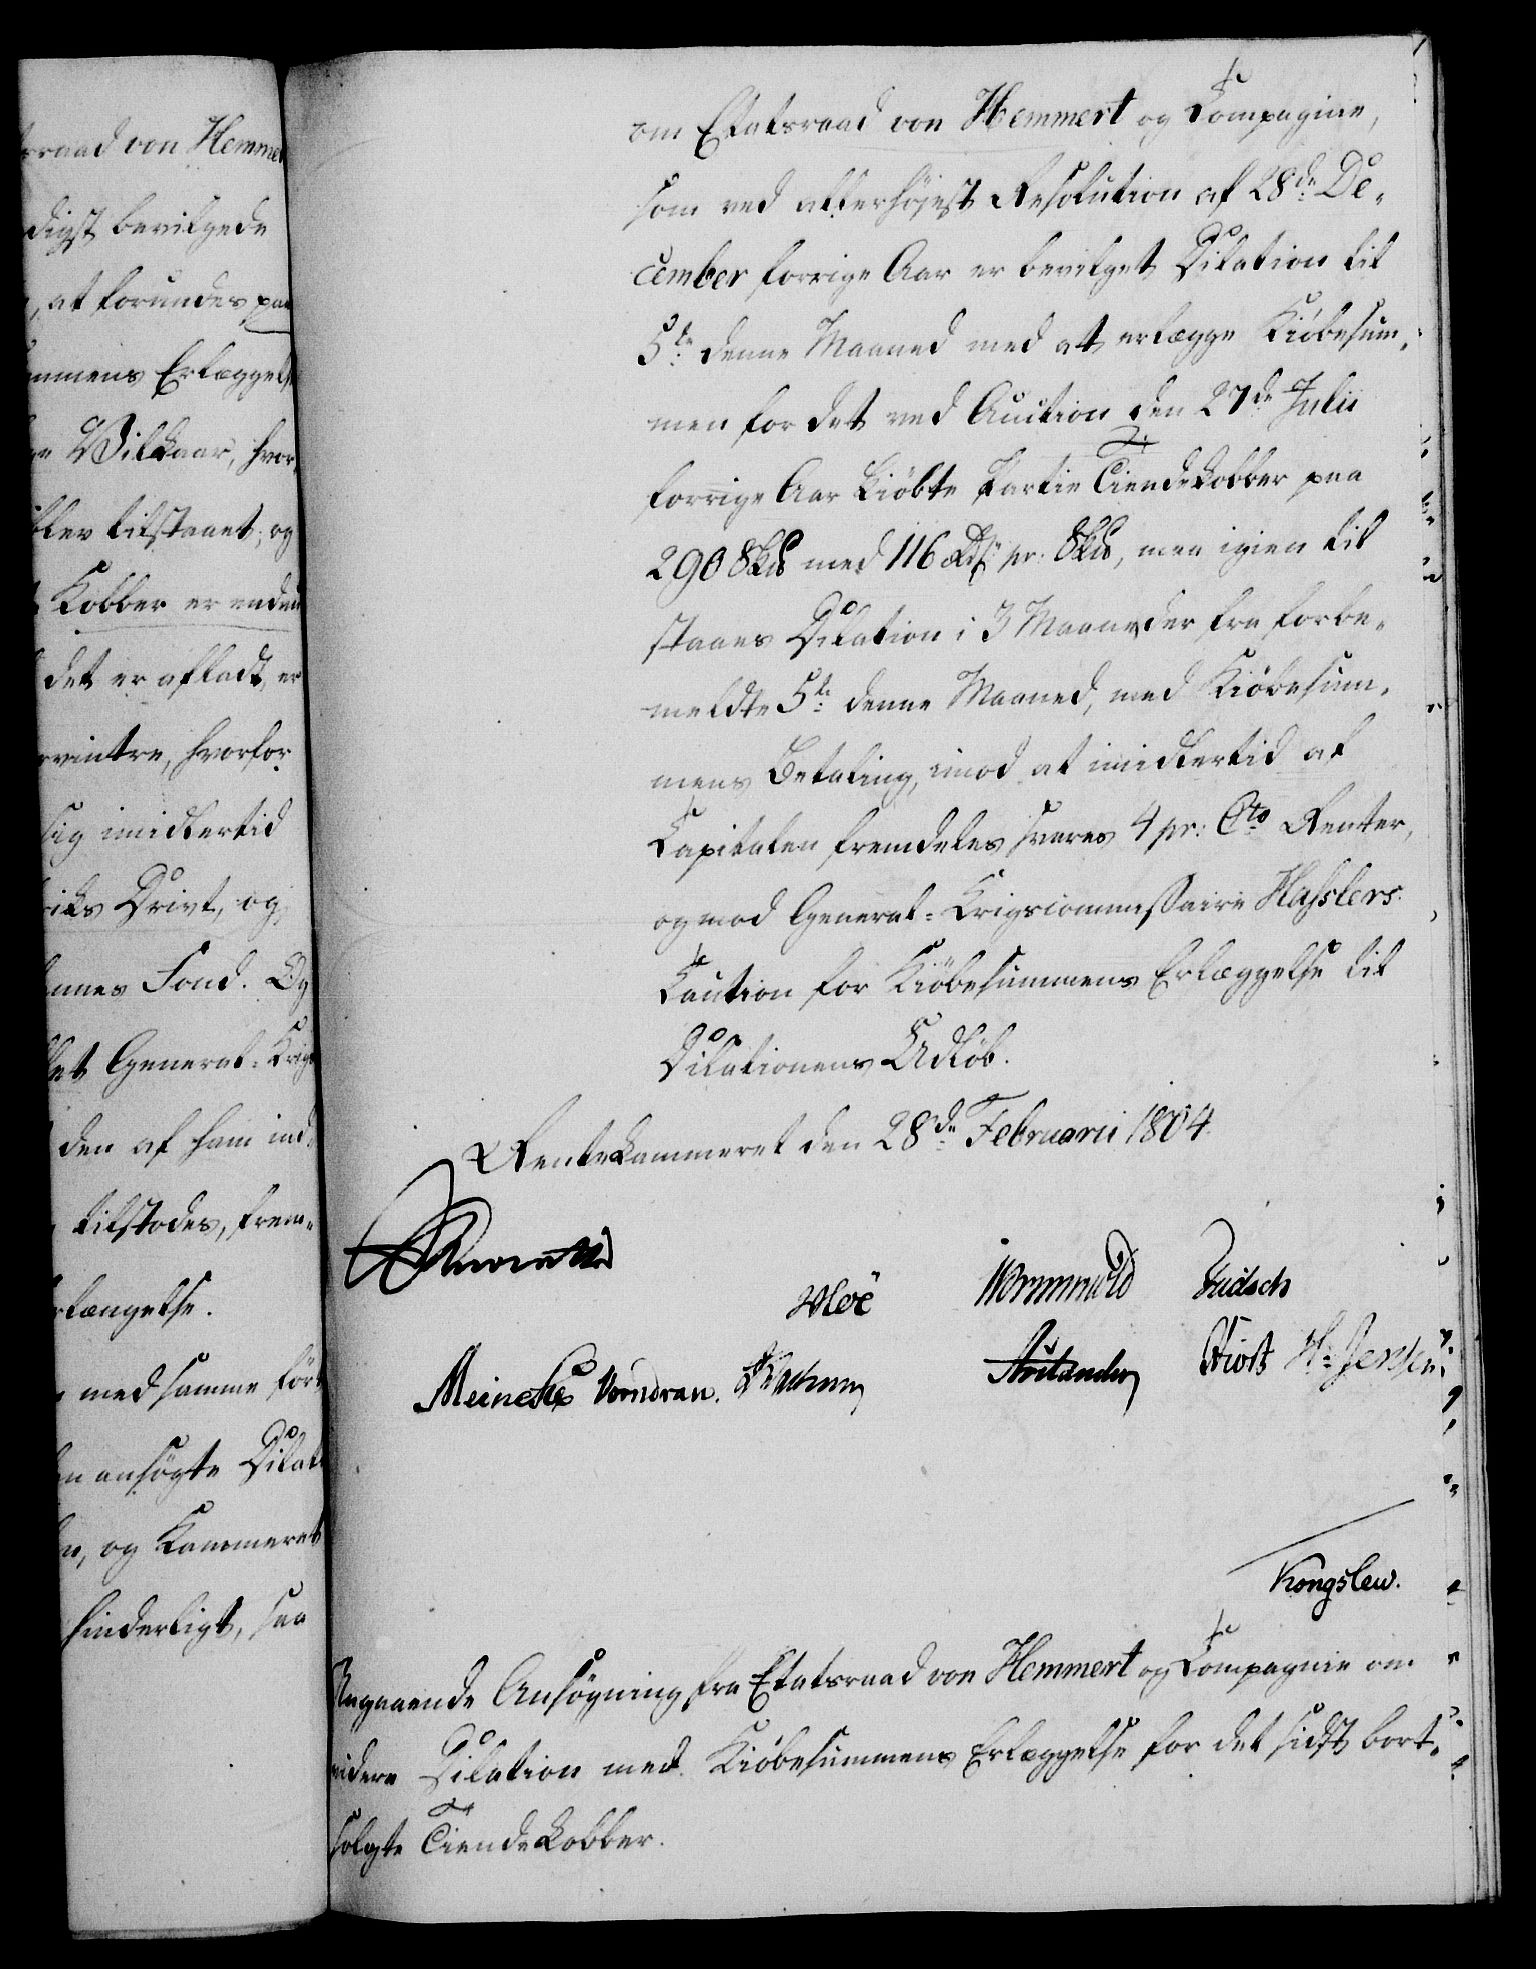 sraad von Hemmer
digst bevilgede
, at forundes paa
ummens Erlæggels
ge Vilkaar, hvor,
blev tilstaaet; og
Kobber er endnu
det er afladt, er
rvintre, hvorfor
sig imidlertid
riks Drivt, og
nnes Fond. Og
let General-Krigs
den af ham ind-
tilstodes, frem-
rlængelse.
med samme før
en ansøgte Dilat
n, og Kammeret
hinderligt, saa
om Etatsraad von Hemmert og Compagnie,
som ved allerhöjest Resolution af 28de De-
cember forrige Aar er bevilget Dilation til
5te denne Maaned med at erlægge Kiöbesum-
men for det ved Auction den 27de Julii
forrige Aar kiöbte Partie Tiendekobber paa
290 Sk℔ med 116 Rdlr pr: Sk℔, maa igien til-
staaes Dilation i 3 Maaneder fra forbe-
meldte 5te denne Maaned, med Kiöbesum-
mens Betaling, imod at imidlertid af
Capitalen fremdeles svares 4 pr: Cto Renter,
og mod General-Krigscommissaire Hasslers
Caution for Kiöbesummens Erlæggelse til
Dilationens Udlöb.
Rentekammeret den 28de Februarii 1804.
Meincke Vorndran.
Hiort W: Jensen
Kongslew.
Angaaende Ansögning fra Etatsraad von Hemmert og Compagnie om
videre Dilation med Kiöbesummens Erlæggelse for det sidst bort-
solgte Tiendekobber.